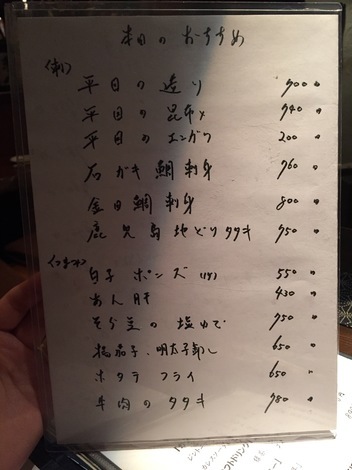 本日のおすすめ
〈刺〉
平目の造り 900円
平目の昆布〆 940円
平目のエンガワ 200円
石ガキ鯛刺身 960円
金目鯛刺身 800円
鹿児島地どりタタキ 950円
〈つまみ〉
白子ポンズ 550円
あん肝 430円
そら豆の塩ゆで 750円
揚茄子、明太子卸し 650円
ホタテフライ 650円
牛肉のタタキ 980円